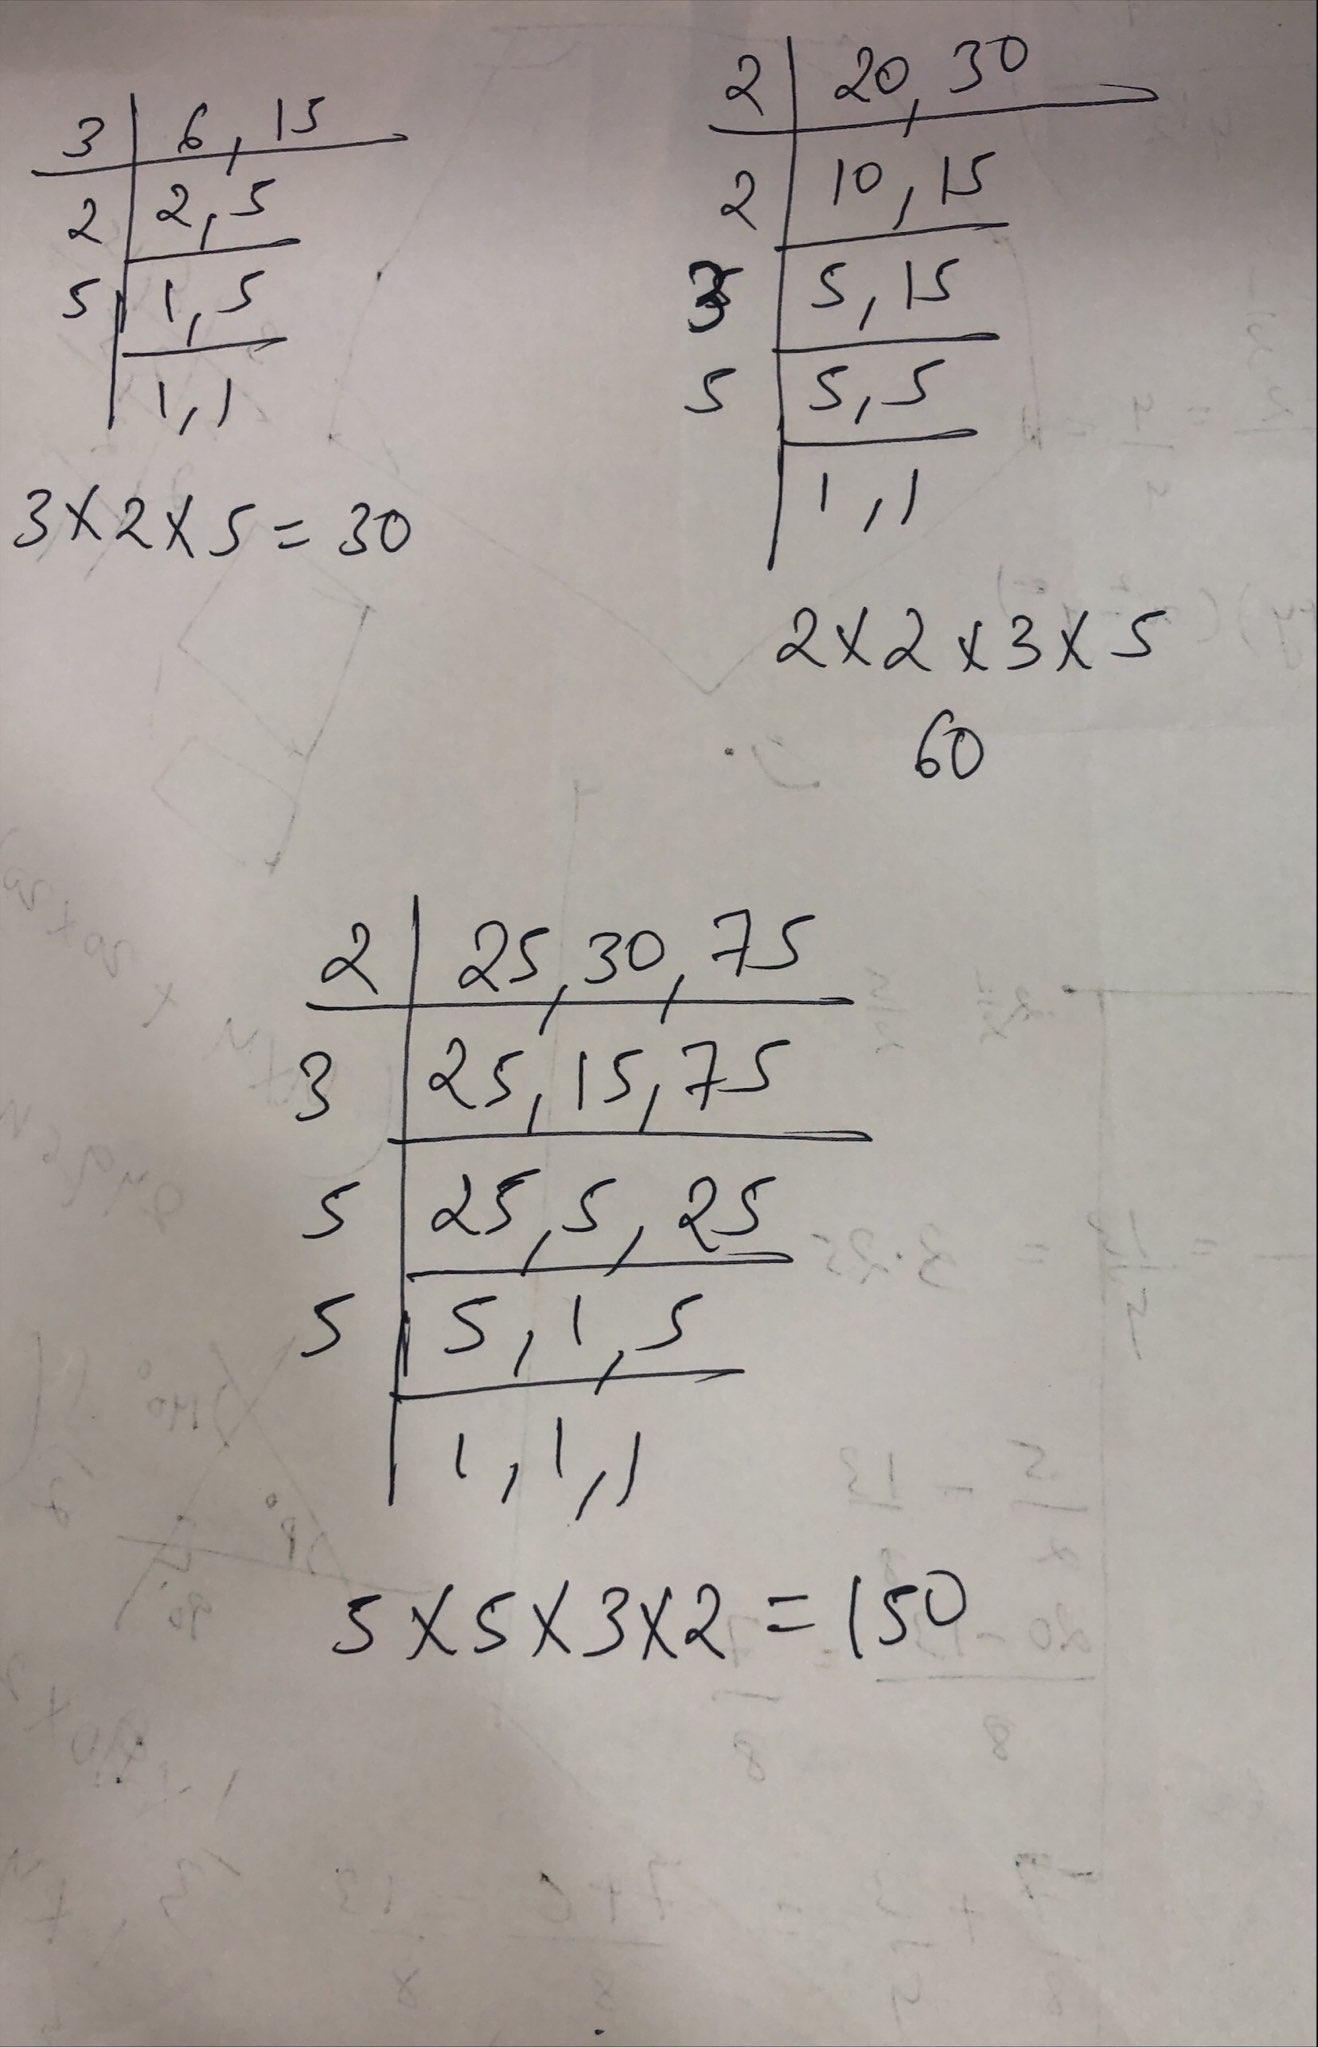 3 | 6, 15
2 | 2, 5
5 | 1, 5
1, 1
3 x 2 x 5 = 30
2 | 20, 30
2 | 10, 15
3 | 5, 15
5 | 5, 5
1, 1
2 x 2 x 3 x 5
60
2 | 25, 30, 75
3 | 25, 15, 75
5 | 25, 5, 25
5 | 5, 1, 5
1, 1, 1
5 x 5 x 3 x 2 = 150